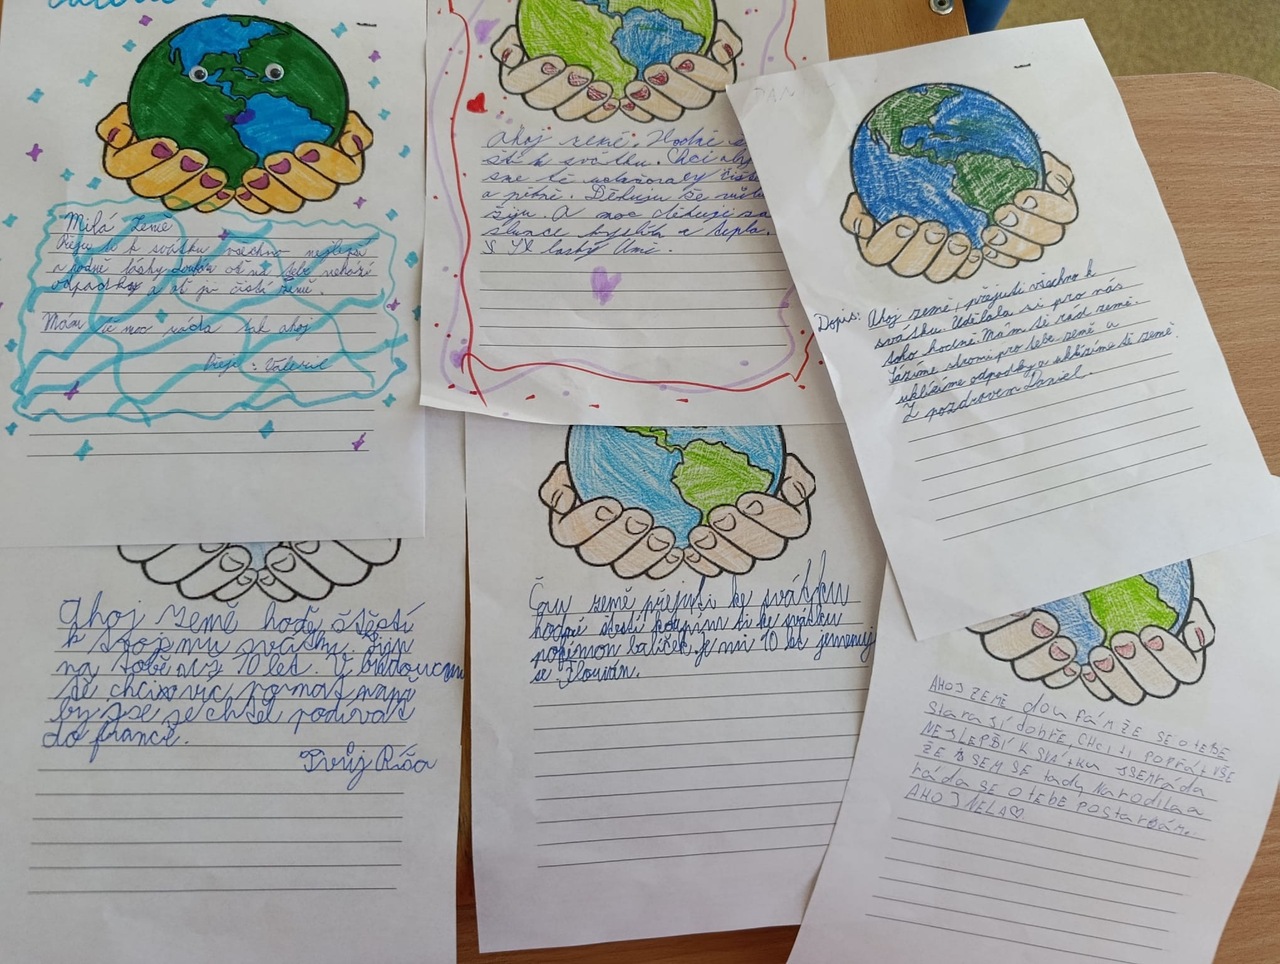 Milá Země
Přeju ti k svátku všechno nejlepší
a hodně lásky doufám ať na tebe nehází
odpadky a ať jsi čistá země.
Mám tě moc ráda tak ahoj
Přeje: Valerie
Ahoj země. Hodně
stí k svátku. Chci aby
sme tě
a pěkně. Děkuju že
žiju. A moc děkuji za
slunce a tepla.
S lásky
Dopis: Ahoj země, přejuti všechno k
svátku. Udělala si pro nás
toho hodně. Mám tě rád země.
Sázíme stromi pro tebe země a
uklízíme odpadky a uklízíme tě země.
Z pozdravem Daniel.
Ahoj Země hodě štěstí
k tvojemu svátku. Žiju
na tobě už 10 let. V budoucnu
tě chci víc poznat např
by jse ze chtěl podívat
do francě.
Tvůj Ríša
Čau země přejuti ke svátku
hodně štestí koupim ti ke svátku
pokémon balíček je mi 10 let jmenuji
se Florián.
AHOJ ZEMĚ douFÁM ŽE SE O tEBE
StaraJí dobře, CHci ti POPŘÁt VŠE
NEJLEPŠÍ K SVÁtKU JSEM ráda
ŽE JSEM SE tady Narodila a
ráda SE O tEBE POStarÁM.
AHOJ NELA♡